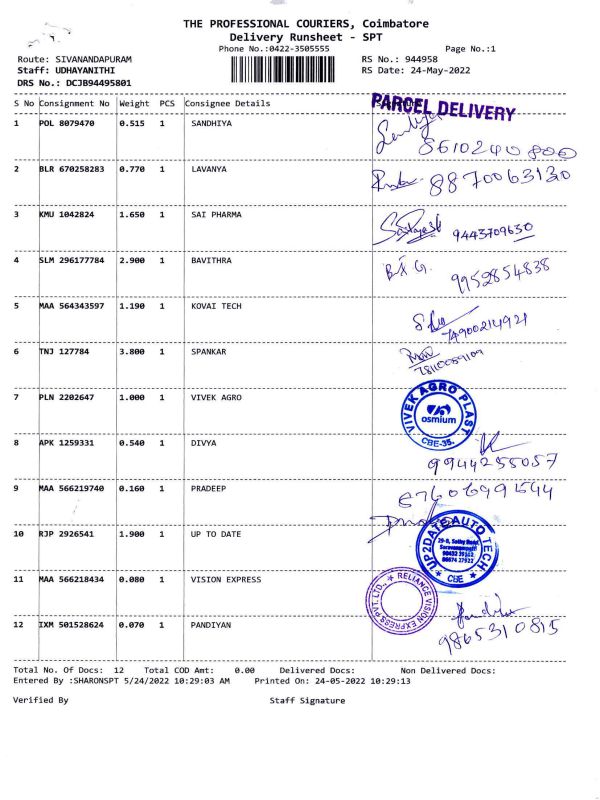 THE PROFESSIONAL COURIERS, Coimbatore
Delivery Runsheet - SPT
Phone No.:0422-3505555
Page No.:1
Route: SIVANANDAPURAM
RS No.: 944958
Staff: UDHAYANITHI
RS Date: 24-May-2022
DRS No.: DCJB94495801
S No Consignment No Weight PCS Consignee Details
PARCEL DELIVERY
1 POL 8079470 0.515 1 SANDHIYA
8610240800
2 BLR 670258283 0.770 1 LAVANYA 8870063130
3 KMU 1042824 1.650 1 SAI PHARMA
9443709630
4 SLM 296177784 2.900 1 BAVITHRA
9952854838
5 MAA 564343597 1.190 1 KOVAI TECH
74900214921
6 TNJ 127784 3.800 1 SPANKAR
7 PLN 2202647 1.000 1 VIVEK AGRO
VIVEK AGRO PLAST
osmium
CBE-35.
8 APK 1259331 0.540 1 DIVYA
9944255057
9 MAA 566219740 0.160 1 PRADEEP
10 RJP 2926541 1.900 1 UP TO DATE
UP2DATE AUTO TECH
CBE
11 MAA 566218434 0.080 1 VISION EXPRESS
RELIANCE VISION EXPRESS PVT. LTD.,
12 IXM 501528624 0.070 1 PANDIYAN
9865310815
Total No. Of Docs: 12 Total COD Amt: 0.00 Delivered Docs: Non Delivered Docs:
Entered By :SHARONSPT 5/24/2022 10:29:03 AM Printed On: 24-05-2022 10:29:13
Verified By Staff Signature